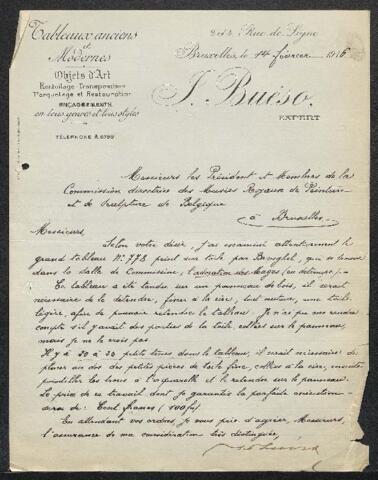 Tableaux anciens
et
Modernes
Objets d'Art
Rentoilage Transposition
Parquetage et Restauration
ENCADREMENTS
en tous genres et tous styles
TÉLÉPHONE A 6799
Rue de Ligne
Bruxelles, le 14 février 1916
J. Buéso,
EXPERT
Messieurs les Président et Membres de la
Commission directrice des Musées Royaux de Peinture
et de Sculpture de Belgique
à Bruxelles
Messieurs,
Selon votre désir, j'ai examiné attentivement le
grand tableau No 778 peint sur toile par Breughel, qui se trouve
dans la Salle de Commission, l'adoration des Mages (en détrempe).
Ce tableau a été tendu sur un panneau de bois, il serait
nécessaire de le détendre, fixer à la cire, une toile
légère, afin de pouvoir retendre le tableau. Je n'ai pu me rendre
compte s'il y avait des parties de la toile collées sur le panneau,
mais je ne le crois pas.
Il y a 20 à 22 petits trous dans le tableau, il serait nécessaire de
placer au dos des petites pièces de toile fine, collées à la cire, ensuite
les trous à l'aquarelle et le retendre sur le panneau.
Le prix de ce travail dont je garantis la parfaite exécution
sera de: Cent francs (100 frs)
En attendant vos ordres, je vous prie d'agréer, Messieurs,
l'assurance de ma considération très distinguée,